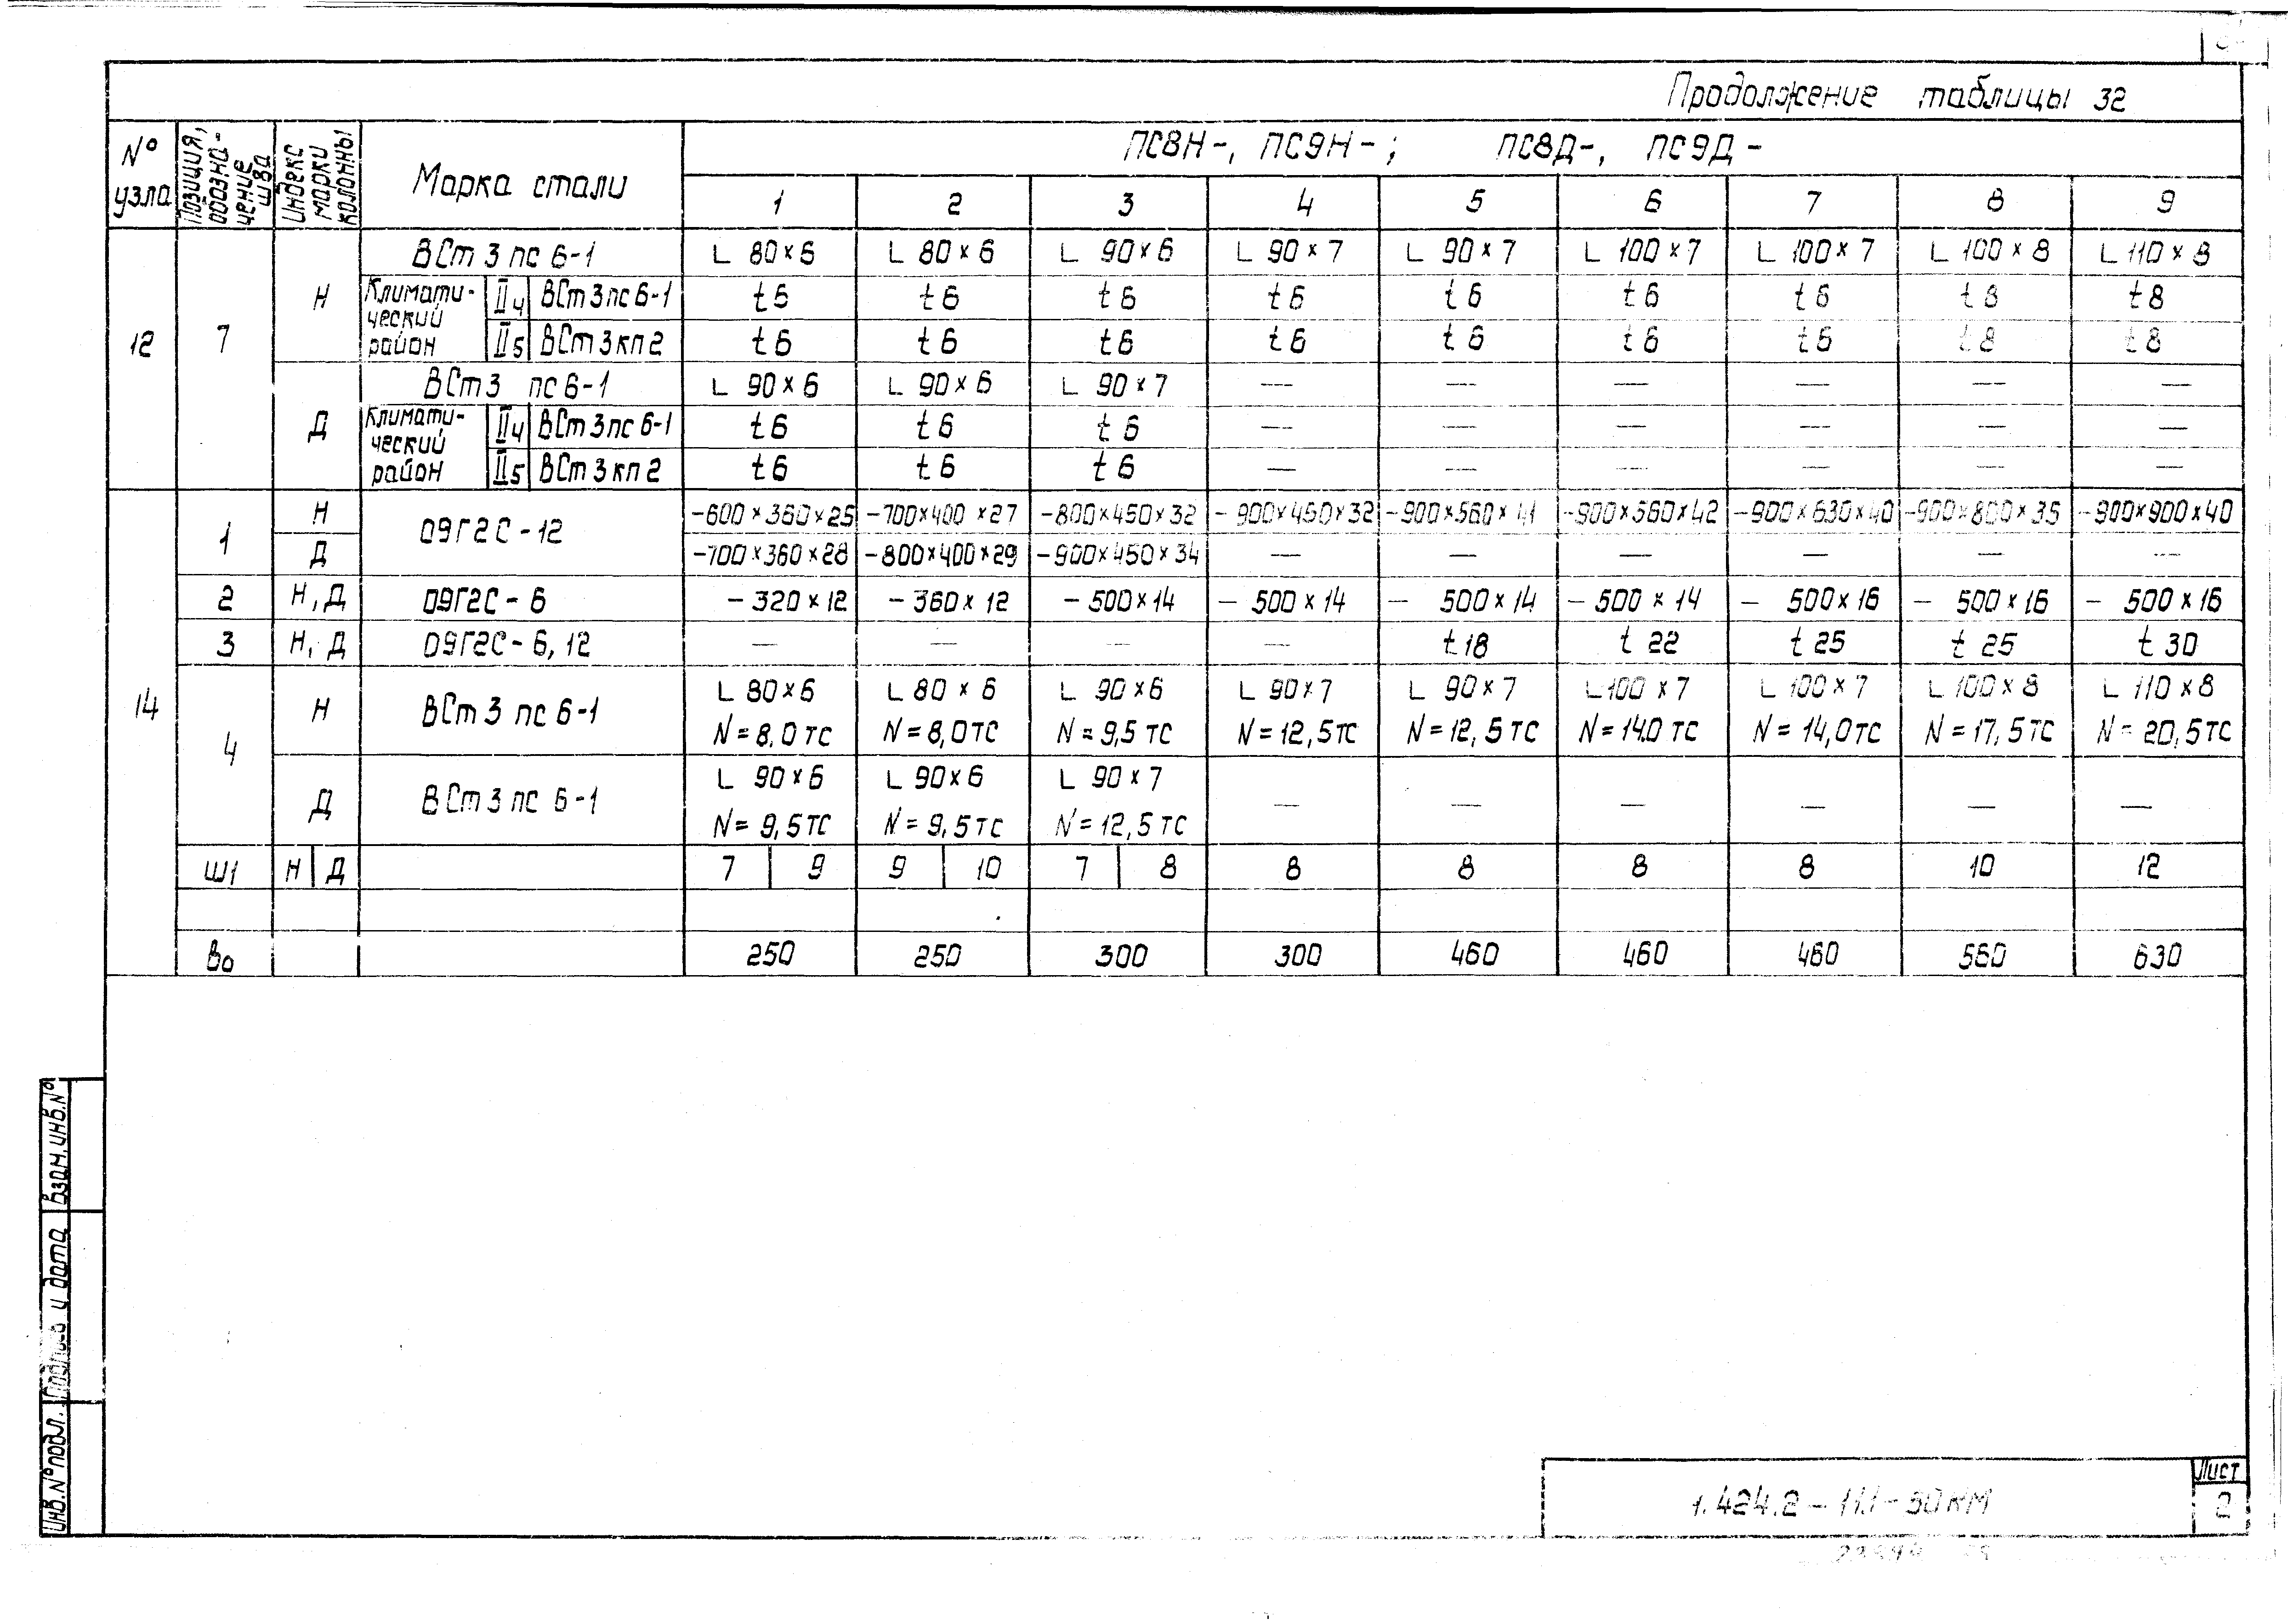 Продолжение таблицы 32
N° узла | Позиция, обозначение шва | Индекс марки колонны | Марка стали | ПС8Н-, ПС9Н-; ПС8Д-, ПС9Д-
1 | 2 | 3 | 4 | 5 | 6 | 7 | 8 | 9
12 | 7 | Н | ВСт3пс6-1 | L 80×6 | L 80×6 | L 90×6 | L 90×7 | L 90×7 | L 100×7 | L 100×7 | L 100×8 | L 110×8
Климатический район | II4 | ВСт3пс6-1 | t6 | t6 | t6 | t6 | t6 | t6 | t6 | t8 | t8
II5 | ВСт3кп2 | t6 | t6 | t6 | t6 | t6 | t6 | t6 | t8 | t8
Д | ВСт3пс6-1 | L 90×6 | L 90×6 | L 90×7 | — | — | — | — | — | —
Климатический район | II4 | ВСт3пс6-1 | t6 | t6 | t6 | — | — | — | — | — | —
II5 | ВСт3кп2 | t6 | t6 | t6 | — | — | — | — | — | —
14 | 1 | Н | 09Г2С-12 | -600×360×25 | -700×400×27 | -800×450×32 | -900×450×32 | -900×560×41 | -900×560×42 | -900×630×40 | -900×800×35 | -900×900×40
Д | -700×360×28 | -800×400×29 | -900×450×34 | — | — | — | — | — | —
2 | Н, Д | 09Г2С-6 | -320×12 | -360×12 | -500×14 | -500×14 | -500×14 | -500×14 | -500×16 | -500×16 | -500×16
3 | Н, Д | 09Г2С-6, 12 | — | — | — | — | t18 | t22 | t25 | t25 | t30
4 | Н | ВСт3пс6-1 | L 80×6 | L 80×6 | L 90×6 | L 90×7 | L 90×7 | L 100×7 | L 100×7 | L 100×8 | L 110×8
N=8,0ТС | N=8,0ТС | N=9,5ТС | N=12,5ТС | N=12,5ТС | N=14,0ТС | N=14,0ТС | N=17,5ТС | N=20,5ТС
Д | ВСт3пс6-1 | L 90×6 | L 90×6 | L 90×7 | — | — | — | — | — | —
N=9,5ТС | N=9,5ТС | N=12,5ТС
Ш1 | Н | Д | 7 | 9 | 9 | 10 | 7 | 8 | 8 | 8 | 8 | 8 | 10 | 12
В0 | 250 | 250 | 300 | 300 | 460 | 460 | 460 | 560 | 630
Взам.инв.N°
Подпись и дата
Инв.N°подл.
1.424.2-11.1-30КМ
Лист
2